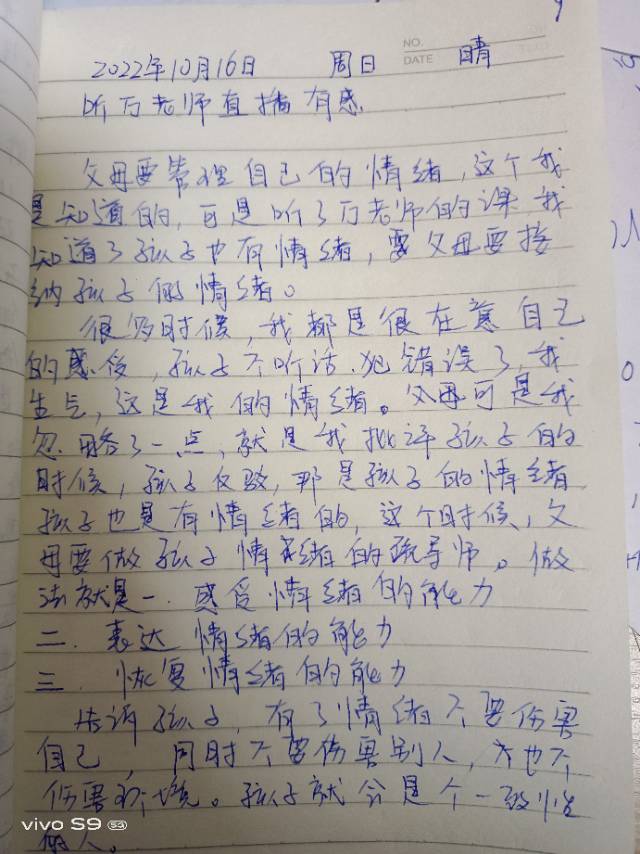 NO.
DATE
2022年10月16日 周日 晴
听万老师直播有感.
父母要管理自己的情绪,这个我
是知道的,可是听了万老师的课我
知道了孩子也有情绪,需父母要接
纳孩子的情绪。
很多时候,我都是很在意自己
的感受,孩子不听话.犯错误了,我
生气,这是我的情绪。父母可是我
忽略了一点,就是我批评孩子的
时候,孩子反驳,那是孩子的情绪
孩子也是有情绪的,这个时候,父
母要做孩子情绪的疏导师。做
法就是一.感受情绪的能力
二.表达情绪的能力
三.恢复情绪的能力
告诉孩子,有了情绪不要伤害
自己,同时不要伤害别人,也不
伤害环境。孩子就会是个一致性
的人。
vivo S9